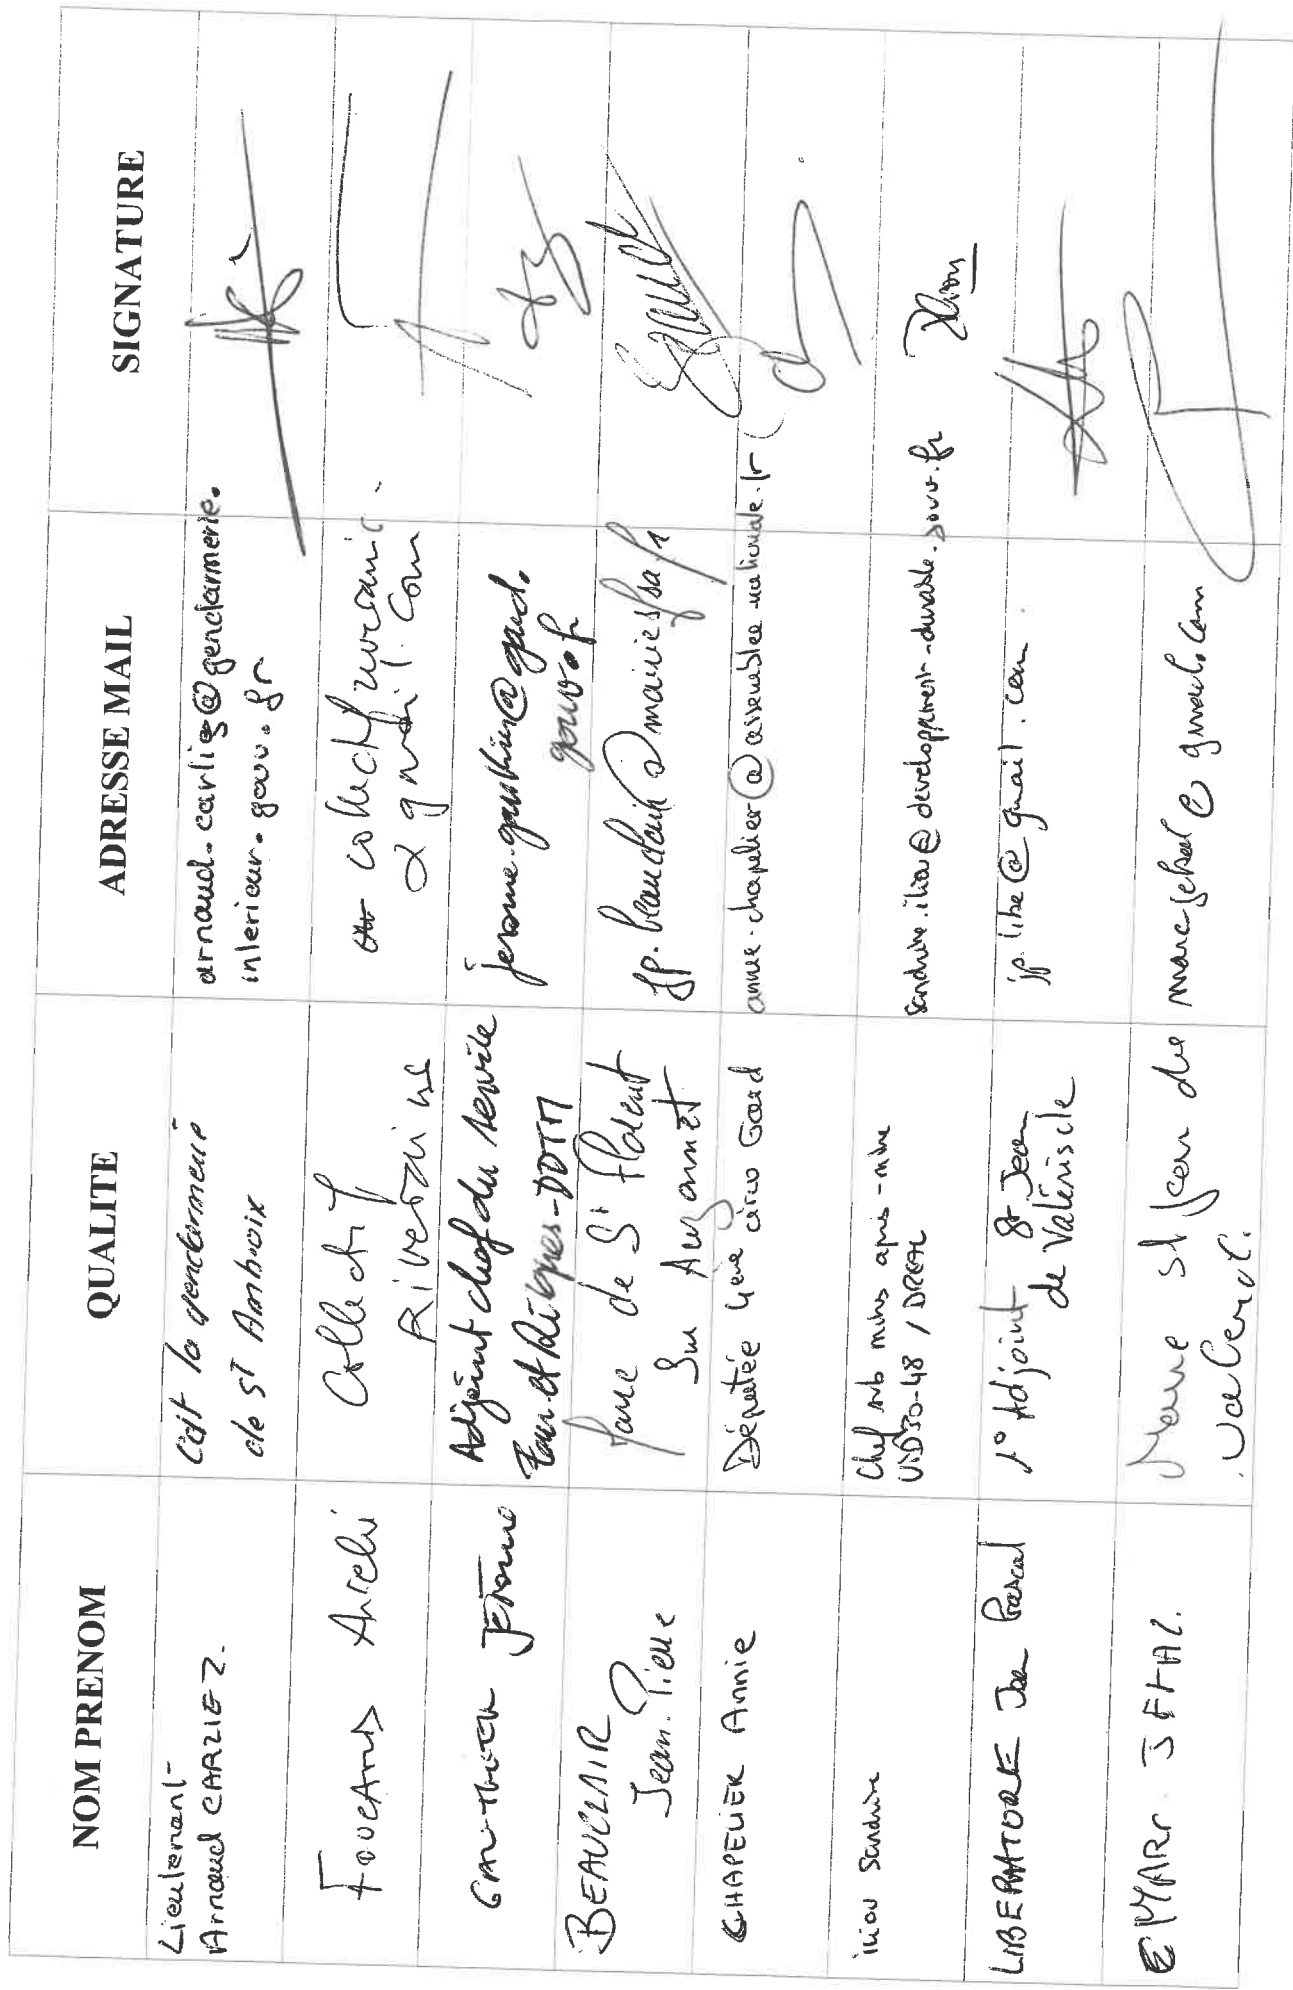 NOM PRENOM
QUALITE
ADRESSE MAIL
SIGNATURE
Lieutenant
Arnaud CARLIEZ.
Cdt la gendarmerie
de ST Ambroix
arnaud.carliez@gendarmerie.
interieur.gouv.fr
Aurelie
Collectif
Riverains
collectif
Jérôme
Adjoint chef du service
Eau et Risques-DDTM
jerome.gauthier@gard.
gouv.fr
BEAUCLAIR
Jean-Pierre
Maire de St Florent
sur Auzonnet
CHAPELIER Annie
Députée 4ème circo Gard
annie.chapelier@assemblee-nationale.fr
ILIOU Sandrine
Chef sub mines après-mine
UID30-48 / DREAL
sandrine.iliou@developpement-durable.gouv.fr
LIBERATORE Jean Pascal
1° Adjoint St Jean
de Valériscle
jp.libe@gmail.com
Marc
Maire St Jean de
Valeriscl.